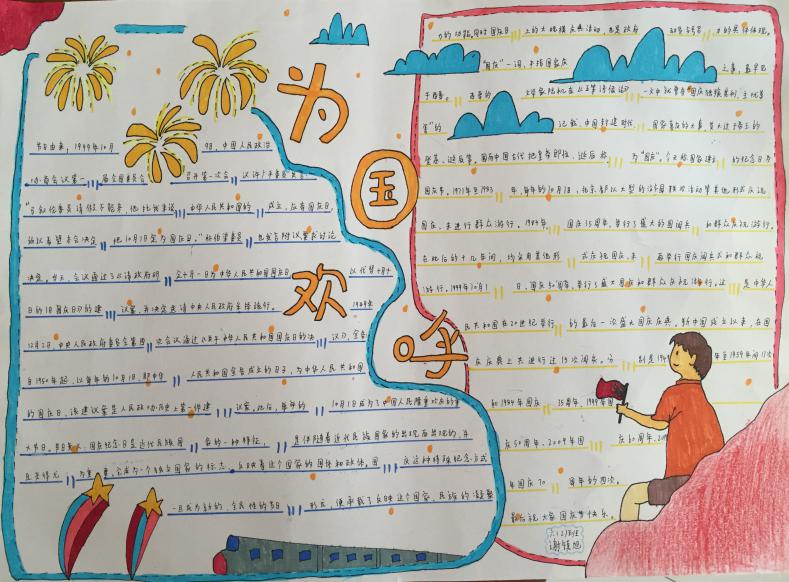 为国欢呼
节日由来，1949年10月9日，中国人民政治
协商会议第一届全国委员会召开第一次会议许广平委员发言
马叙伦委员请假不能来，他托我来说中华人民共和国的成立，应有国庆日，
所以希望本会决定把10月1日定为国庆日。林伯渠委员也发言附议要求讨论
决定。当天，会议通过了请政府明定十月一日为中华人民共和国国庆日以代替十月十
日的旧国庆日的建议案，并决定送请中央人民政府采择施行。1949年
12月2日，中央人民政府委员会第四次会议通过
自1950年起，以每年的10月1日，即中华人民共和国宣告成立的日子，为中华人民共和国
的国庆日，该建议案是人民政协历史上第一件建议案。此后，每年的10月1日成为了中国人民隆重欢庆的重
大节日。节日意义，国庆纪念日是近代民族国家的一种特征，是伴随着近代民族国家的出现而出现的，并
且变得尤为重要，它成为一个独立国家的标志，反映着这个国家的国体和政体。国庆这种特殊纪念方式
一旦成为新的、全民性的节日形式，便承载了反映这个国家、民族的凝聚
力的功能。同时国庆日上的大规模庆典活动，也是政府动员与号召力的具体体现。
“国庆”一词，本指国家庆之事，最早见
于西晋。西晋的文学家陆机在《五等诸侯论》一文中就曾有“国庆独飨其利，主忧莫
与其害”的记载，中国封建时代，国家喜庆的大事，莫大过于帝王的
登基、诞辰等。因而中国古代把皇帝即位、诞辰称为“国庆”，今天称国家建立的纪念日为
国庆节。1971年至1983年，每年的10月1日，北京都以大型的游园联欢活动等其他形式庆祝
国庆，未进行群众游行。1984年，国庆35周年，举行了盛大的国庆阅兵和群众庆祝游行。
在此后的十几年间，均采用其他形式庆祝国庆，未再举行国庆阅兵式和群众庆祝
游行。1999年10月1日，国庆50周年，举行了盛大国庆阅兵和群众庆祝游行。这是中华人
民共和国在20世纪举行的最后一次盛大国庆庆典。新中国成立以来，在国
庆庆典上共进行过15次阅兵。分别是1949年至1959年间11次
和1984年国庆35周年，1999年国
庆50周年、2009年国庆60周年，2019
年国庆70周年的四次。
最后祝大家国庆节快乐。